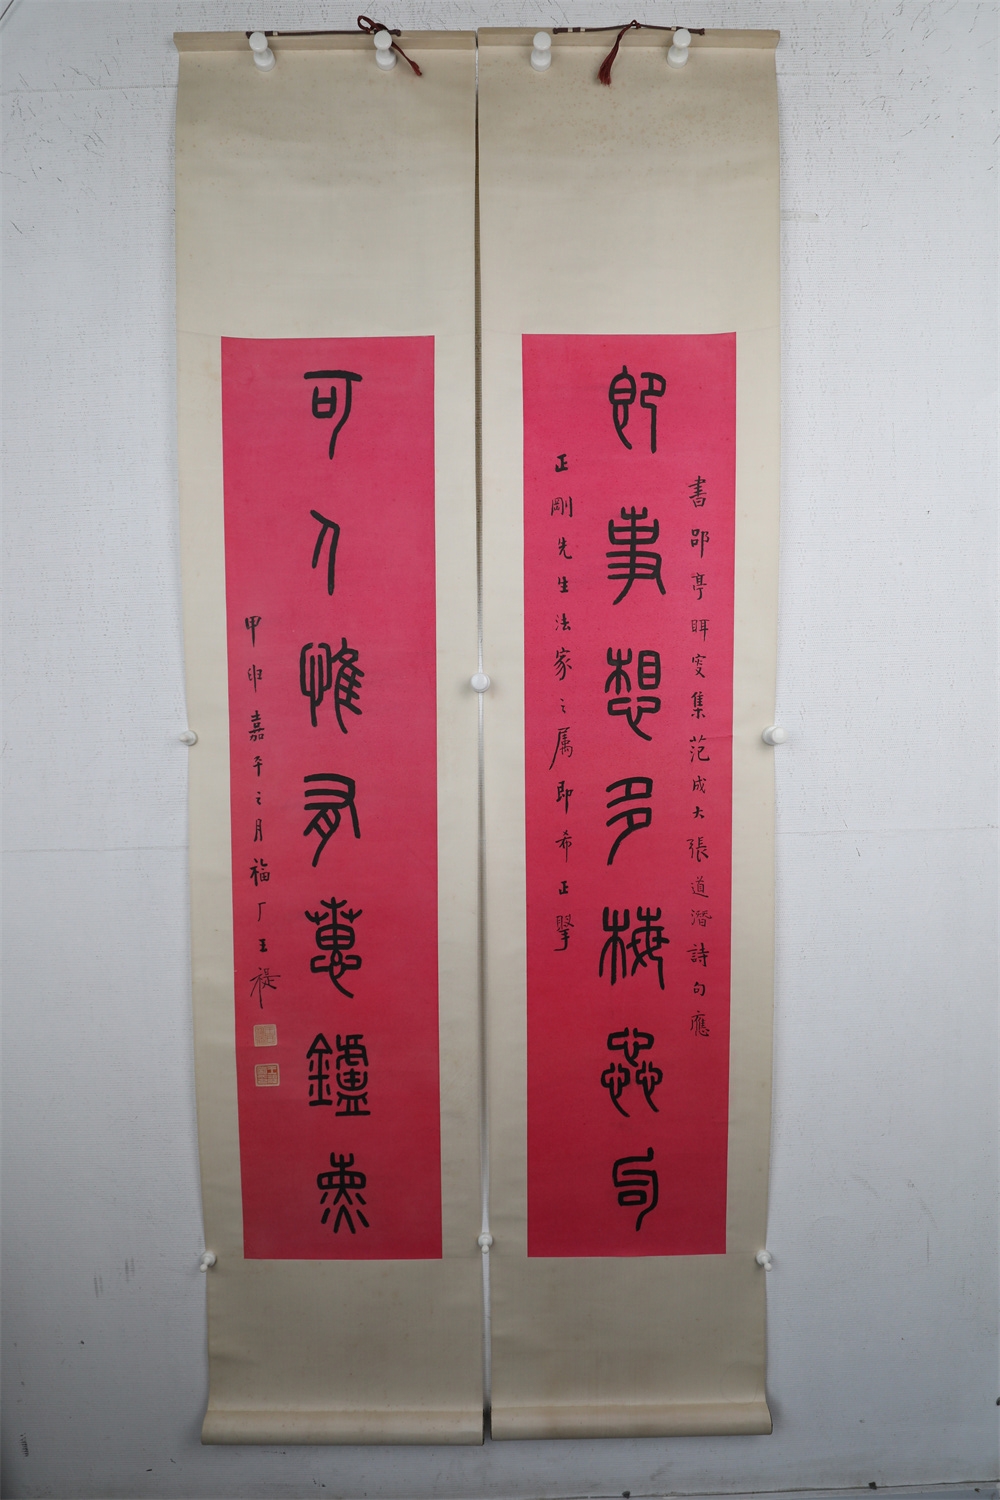 即事想多梅惢句
書郘亭眲叟集范成大張道潛詩句應
正剛先生法家之属即希正掔
可人惟有蕙鑪熏
甲申嘉平之月福厂王禔